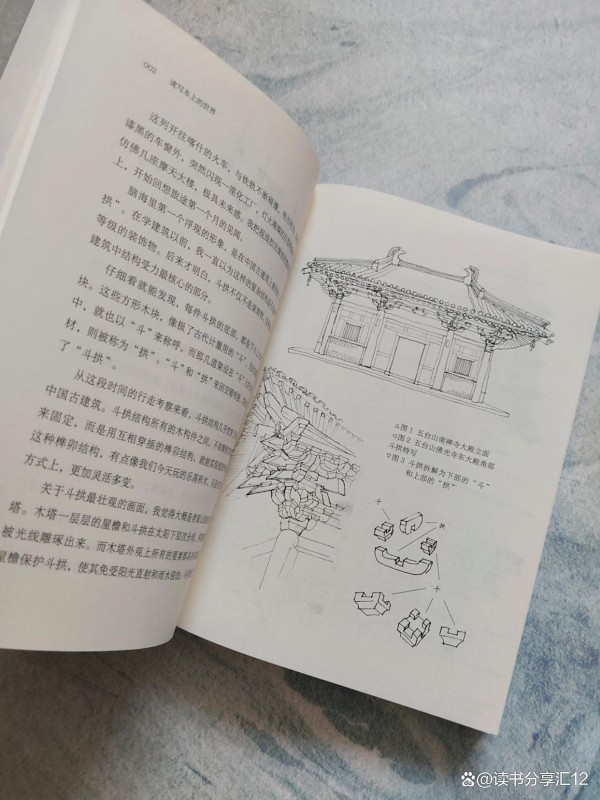 002 速写本上的世界
这列开往喀什的火车，与铁轨不断碰撞
漆黑的车窗外，突然闪现一座化工厂，灯火
仿佛几座摩天大楼，极具未来感。我把
上，开始回想旅途第一个月的见闻。
脑海里第一个浮现的形象，是在中国古建筑上
拱”。在学建筑以前，我一直以为这样的
等级的装饰物。后来才明白，斗拱不仅不是装饰
建筑中结构受力最核心的部分。
仔细看就能发现，每件斗拱的底部，都有
块。这些方形木块，像极了古代计量粮食的“斗”
中，就也以“斗”来称呼。而那几道架设在“斗”
材，则被称为“拱”。“斗”和“拱”来回交替
了“斗拱”。
从这段时间的行走考察来看，斗拱结构几乎
中国古建筑。斗拱结构所有的木构件之间，不
来固定，而是用互相穿插的榫卯结构，就能
这种榫卯结构，有点像我们今天玩的乐高积木，只
方式上，更加灵活多变。
关于斗拱最壮观的画面，我觉得大概是
塔。木塔一层层的屋檐和斗拱在太阳下层次分
被光线雕琢出来。而木塔外观上所有的
屋檐保护斗拱，使其免受阳光直射和雨水侵蚀
△图1 五台山南禅寺大殿立面
◁图2 五台山佛光寺东大殿角部
斗拱特写
▽图3 斗拱拆解为下部的“斗”
和上部的“拱”
斗
拱
斗
@读书分享汇12